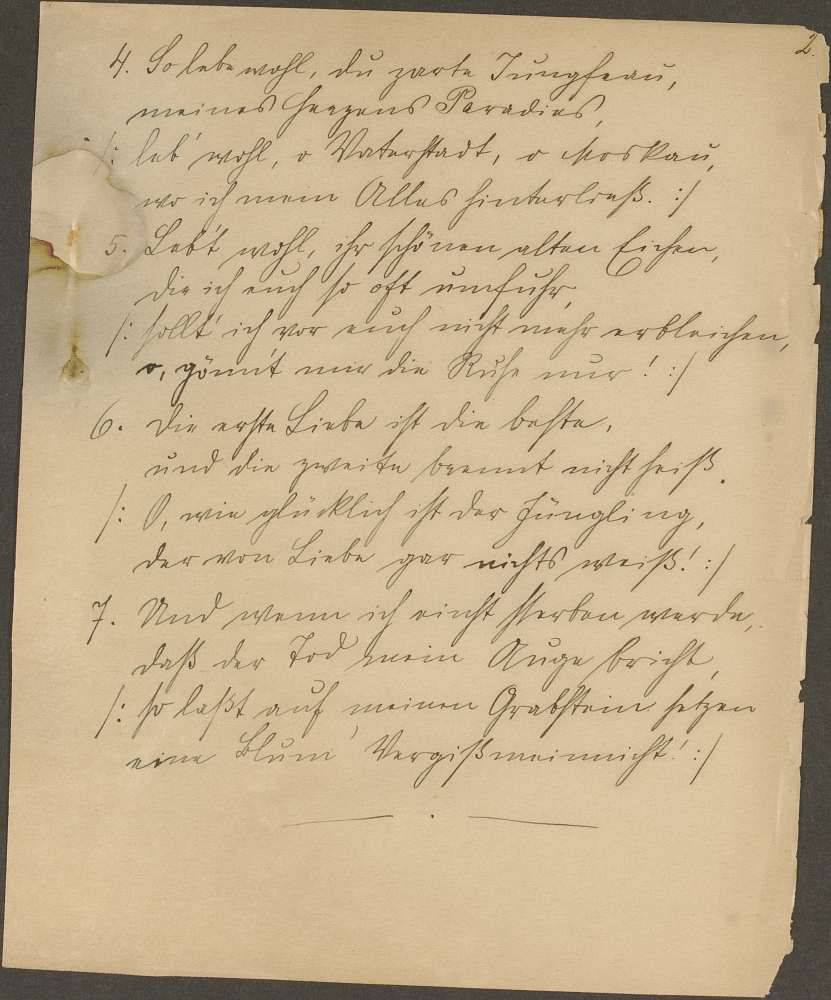 2.
4. So lebe wohl, du zarte Jungfrau,
meines Herzens Paradies,
/: leb' wohl, o Vaterstadt, o Moskau,
wo ich mein Alles hinterließ. :/
5. Leb't wohl, ihr schönen alten Eichen,
die ich euch so oft umfuhr,
/: sollt' ich vor euch nicht mehr erbleichen,
o, gönn't mir die Ruhe nur! :/
6. Die erste Liebe ist die beste,
und die zweite brennt nicht heiß.
/: O, wie glücklich ist der Jüngling,
der von Liebe gar nichts weiß! :/
7. Und wenn ich einst sterben werde,
daß der Tod mein Auge bricht,
/: so laßt auf meinen Grabstein setzen
eine Blum' Vergißmeinnicht! :/